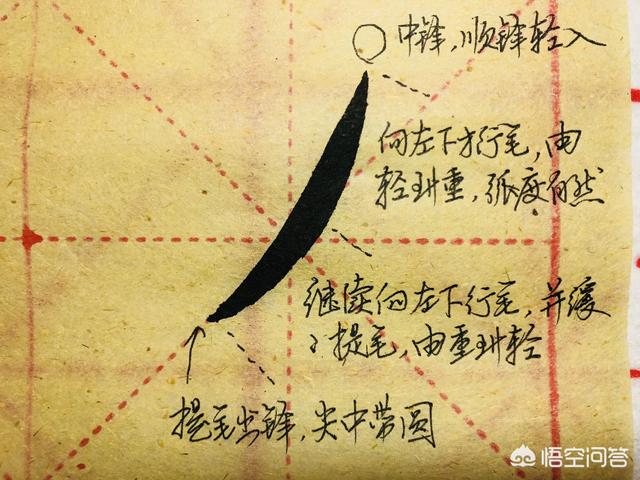 中锋,顺锋轻入
向左下方行毛,由
轻到重,弧度自然
继续向左下行毛,并缓
缓提毛,由重到轻
提毛出锋,尖中带圆
悟空问答